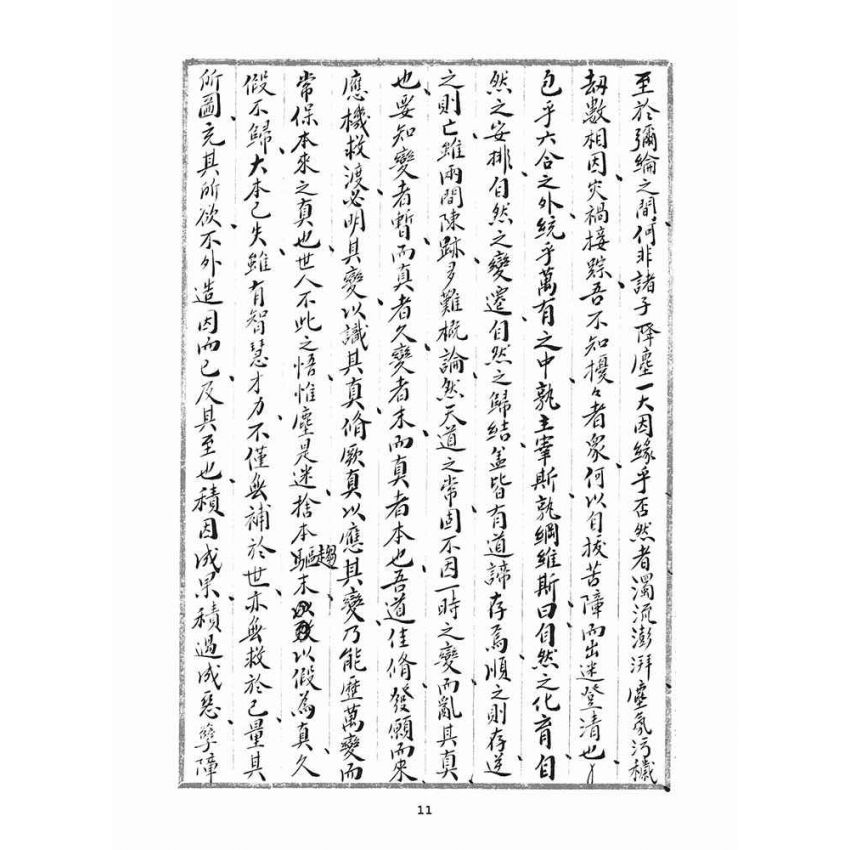 至於彌綸之間何非諸子降塵一大因緣乎否然者濁流澎湃塵氛污穢
劫數相因災禍接踪吾不知擾々者眾何以自拔苦障而出迷登清也
包乎六合之外統乎萬有之中孰主宰斯孰綱維斯曰自然之化育自
然之安排自然之變遷自然之歸結蓋皆有道諦存焉順之則存逆
之則亡雖兩間陳跡多難概論然天道之常固不因一時之變而亂其真
也要知變者暫而真者久變者末而真者本也吾道佳脩發願而來
應機救渡必明其變以識其真脩厥真以應其變乃能歷萬變而
常保本來之真也世人不此之悟惟塵是迷捨本趨末以假為真久
假不歸大本已失雖有智慧才力不僅無補於世亦無救於己量其
所圖充其所欲不外造因而已及其至也積因成果積過成惡孽障
11